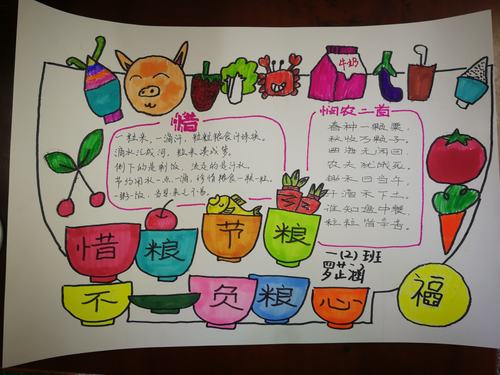 牛奶
惜
一粒米,一滴汗,粒粒粮食汗珠换。
滴水汇成河,粒米凑成箩。
倒下的是剩饭,流走的是汗水。
节约用水一点一滴,珍惜粮食一颗一粒。
一粥一饭,当思来之不易。
悯农二首
春种一颗粟,
秋收万颗子。
四海无闲田,
农夫犹饿死。
锄禾日当午,
汗滴禾下土。
谁知盘中餐,
粒粒皆辛苦。
惜粮节粮
一(2)班
不负粮心
福